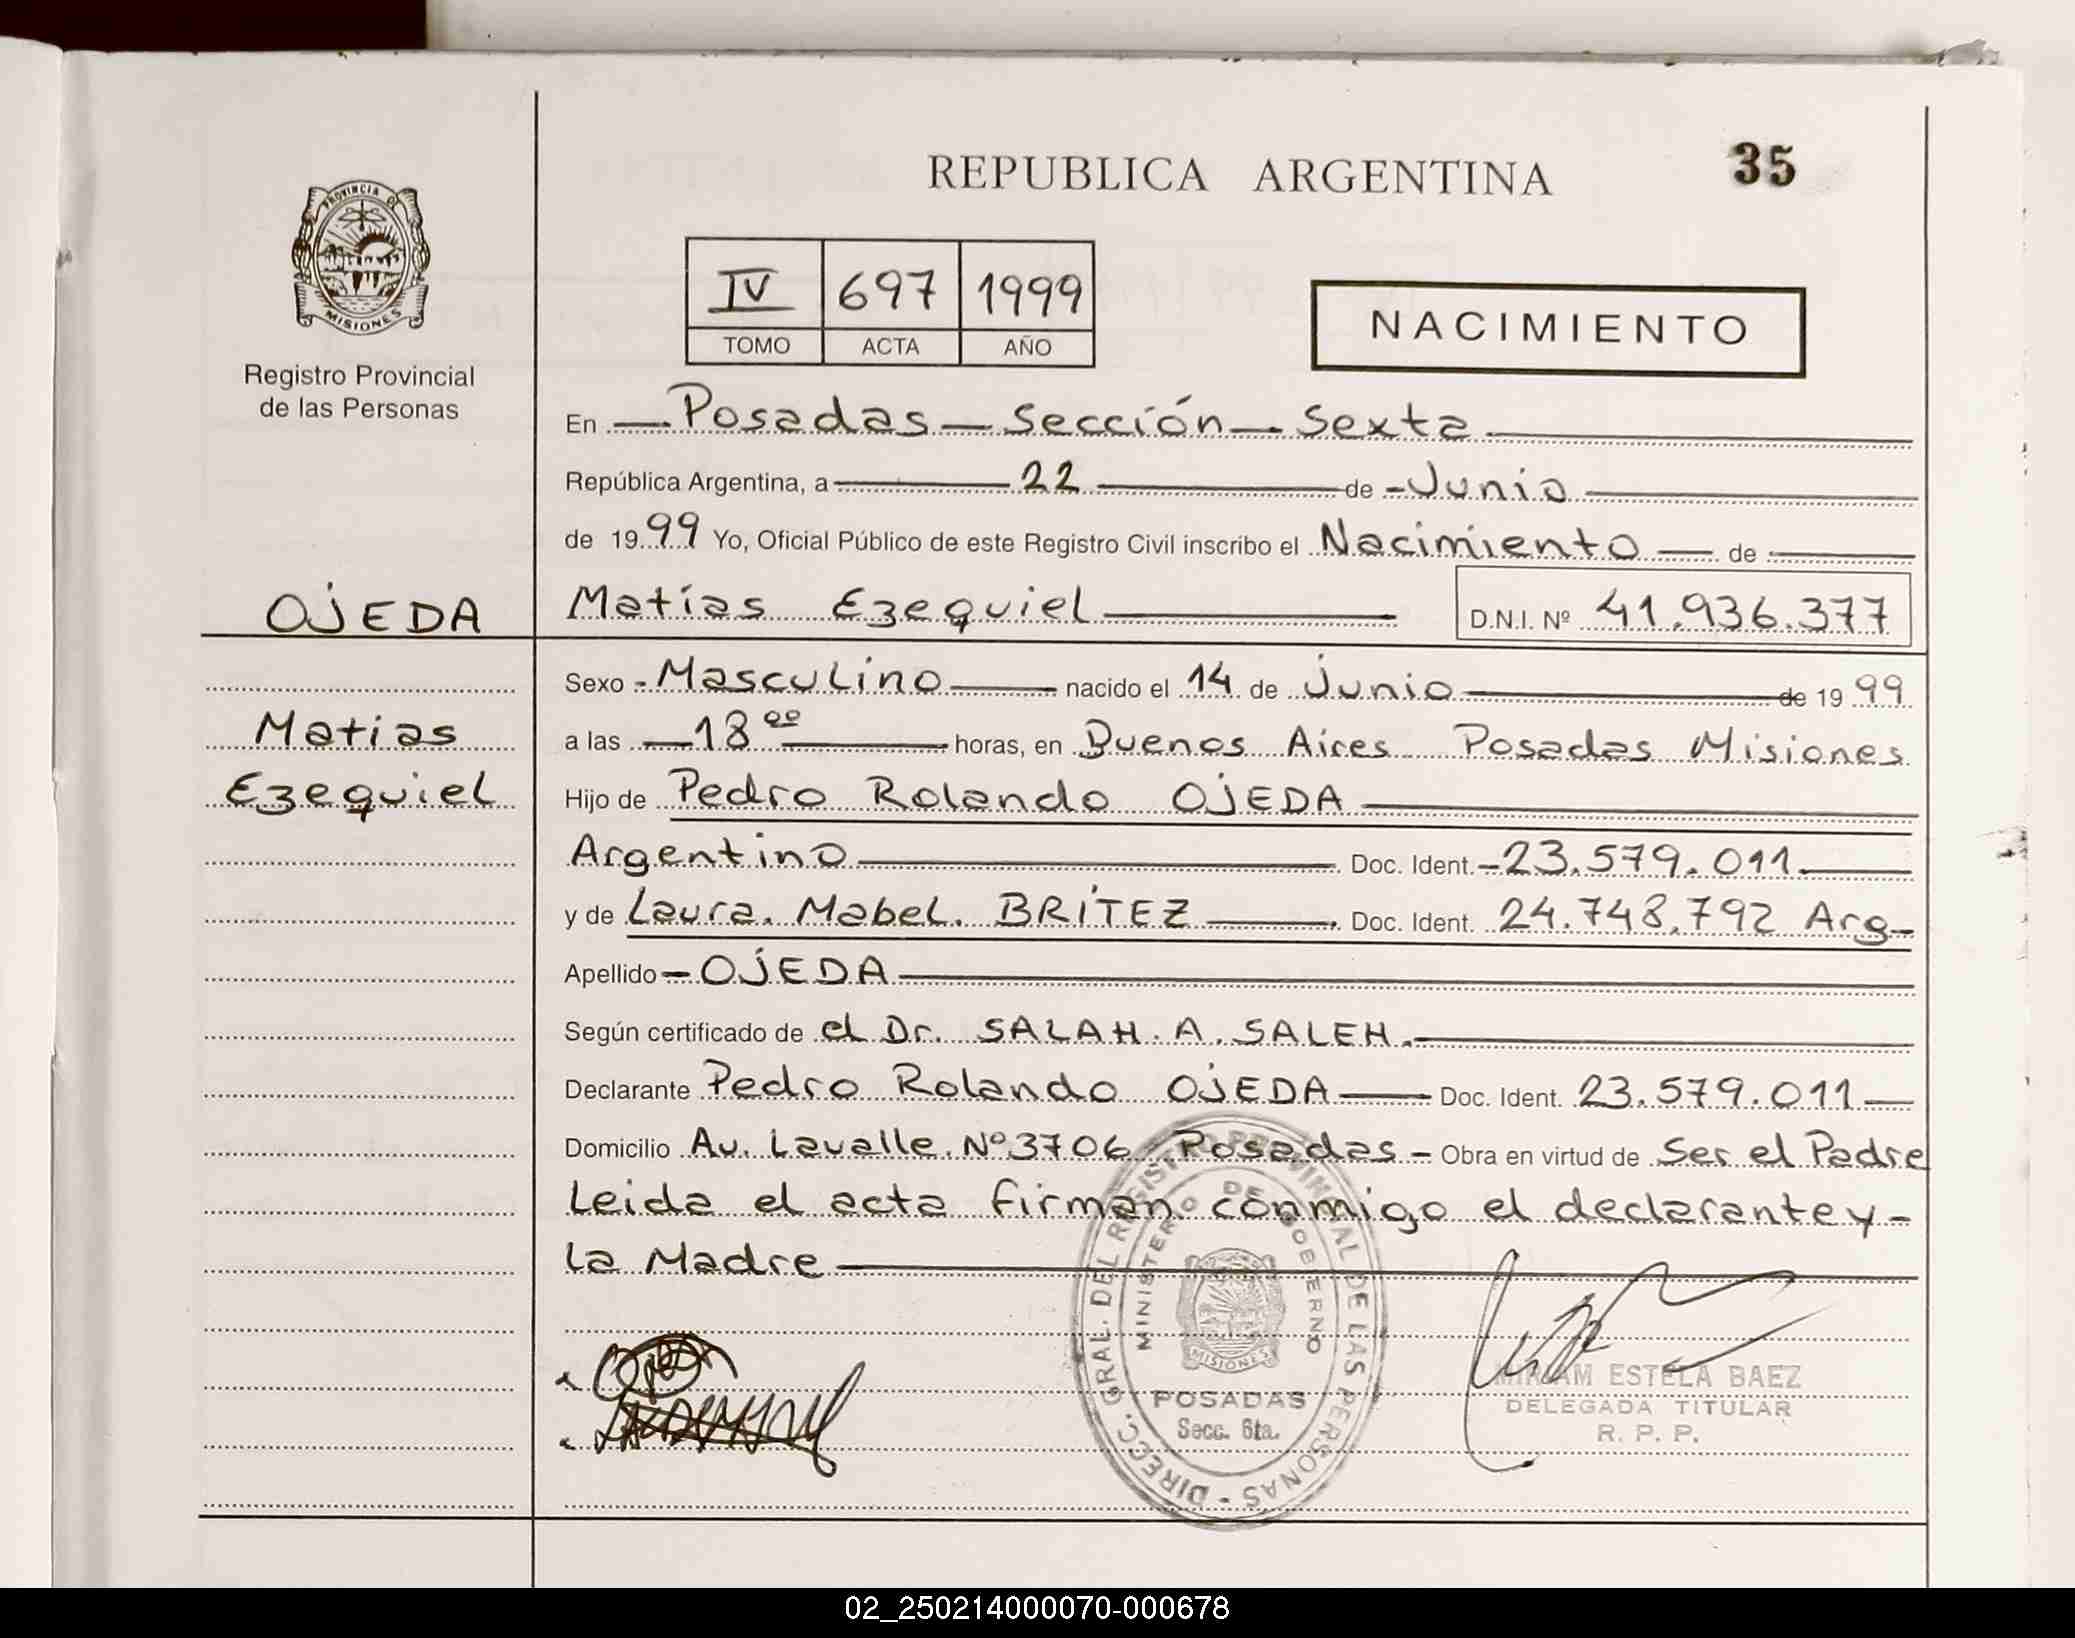 REPUBLICA ARGENTINA
35
PROVINCIA DE
MISIONES
Registro Provincial
de las Personas
IV 697 1999
TOMO ACTA AÑO
NACIMIENTO
En Posadas Sección Sexta
República Argentina, a 22 de Junio
de 1999 Yo, Oficial Público de este Registro Civil inscribo el Nacimiento de
OJEDA
Matías Ezequiel D.N.I. Nº 41.936.377
Sexo Masculino nacido el 14 de junio de 1999
Matias
a las 18ºº horas, en Buenos Aires Posadas Misiones
Ezequiel
Hijo de Pedro Rolando OJEDA
Argentino Doc. Ident. 23.579.011
y de Laura. Mabel. BRITEZ Doc. Ident. 24.748.792 Arg
Apellido OJEDA
Según certificado de el Dr. SALAH. A. SALEH.
Declarante Pedro Rolando OJEDA Doc. Ident. 23.579.011
Domicilio Av. Lavalle. Nº 3706 Posadas Obra en virtud de Ser el Padre
Leida el acta firman conmigo el declarante y
La Madre
DIRECC. GRAL. DEL REGISTRO PROVINCIAL DE LAS PERSONAS
MINISTERIO DE GOBIERNO
MISIONES
POSADAS
Secc. 6ta.
MIRIAM ESTELA BAEZ
DELEGADA TITULAR
R. P. P.
02_250214000070-000678